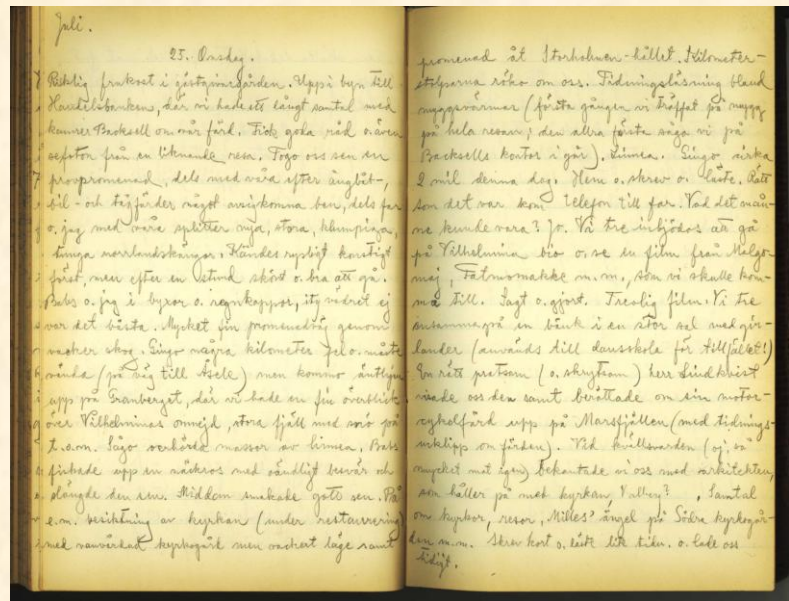 Juli.
25. Onsdag.
Riklig frukost i gästgivargården. Uppi byn till
Handelsbanken, där vi hade ett långt samtal med
kamrer Backsell om vår färd. Fick goda råd o. även
foton från en liknande resa. Togo oss sen en
provpromenad, dels med våra efter ångbåt-,
bil- och tågfärder något avigkomna ben, dels far
o. jag med våra splitter nya, stora, klumpiga,
tunga norrlandskängor. Kändes rysligt konstigt
först, men efter en stund skönt o. bra att gå.
Babs o. jag i byxor o. regnkappor, ity vädret ej
var det bästa. Mycket fin promenadväg genom
vacker skog. Gingo några kilometer fel o. måste
vända (på väg till Åsele) men kommo äntligen
upp på Granberget, där vi hade en fin överblick
över Vilhelminas omnejd, stora fjäll med snö på
t.o.m. Sågo oerhörda massor av linnea, Babs
fiskade upp en näckros med oändligt besvär och
slängde den sen. Middagen smakade gott sen. På
e.m. besiktning av kyrkan (under restaurering)
med vanvårdad kyrkogård men vackert läge samt
promenad åt Storholmen-hållet. Kilometer-
stolparna röko om oss. Tidningsläsning bland
myggsvärmar (första gången vi träffat på mygg
på hela resan; den allra första sågo vi på
Backsells kontor i går). Linnea. Gingo cirka
2 mil denna dag. Hem o. skrev o. läste. Rätt
som det var kom telefon till far. Vad det mån-
ne kunde vara? Jo. Vi tre inbjödos att gå
på Vilhelmina bio o. se en film från Malgo-
maj, Fatmomakke m.m., som vi skulle kom-
ma till. Sagt o. gjort. Trevlig film. Vi tre
ensamma på en bänk i en stor sal med gir-
lander (används till dansskola för tillfället!)
En rätt pratsam (o. skrytsam) herr Lindkvist
visade oss den samt berättade om sin motor-
cykelfärd upp på Marsfjällen (med tidnings-
urklipp om färden). Vid kvällsvarden (oj, så
mycket mat igen) bekantade vi oss med arkitekten,
som håller på med kyrkan, ? . Samtal
om kyrkor, resor, Milles' ängel på Södra kyrkogår-
den m.m. Skrev kort o. läste lite tidn. o. lade oss
tidigt.